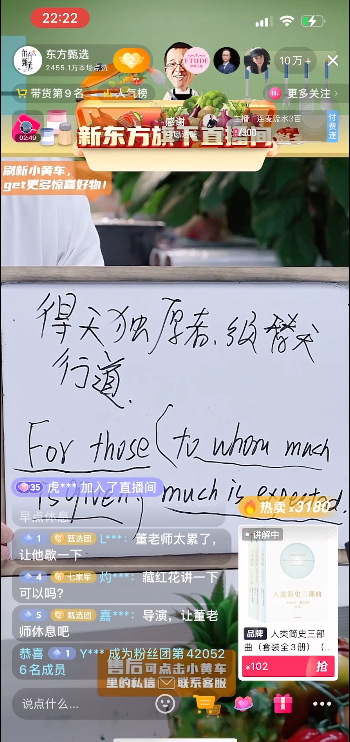 22:22
东方甄选
2445.1万本场点赞
ETUDE
10万+
带货第9名
人气榜
更多关注
新东方旗下直播间
感谢
02:49
付费连
刷新小黄车，
get更多惊喜好物！
得天独厚者,必替天
行道.
For those (to whom much
is given) much is expected.
35 虎*** 加入了直播间
早点休息
1 甄选团 L***： 董老师太累了，
让他歇一下
4 七家军 灼***： 藏红花讲一下
可以吗？
5 甄选团 嘉***： 导演，让董老
师休息吧
恭喜 1 Y*** 成为粉丝团第42052
6名成员
热卖 x3180
讲解中
人类简史三部曲
品牌 人类简史三部
曲（套装全3册）（...
¥102 抢
售后可点击小黄车
里的私信 联系客服
说点什么...